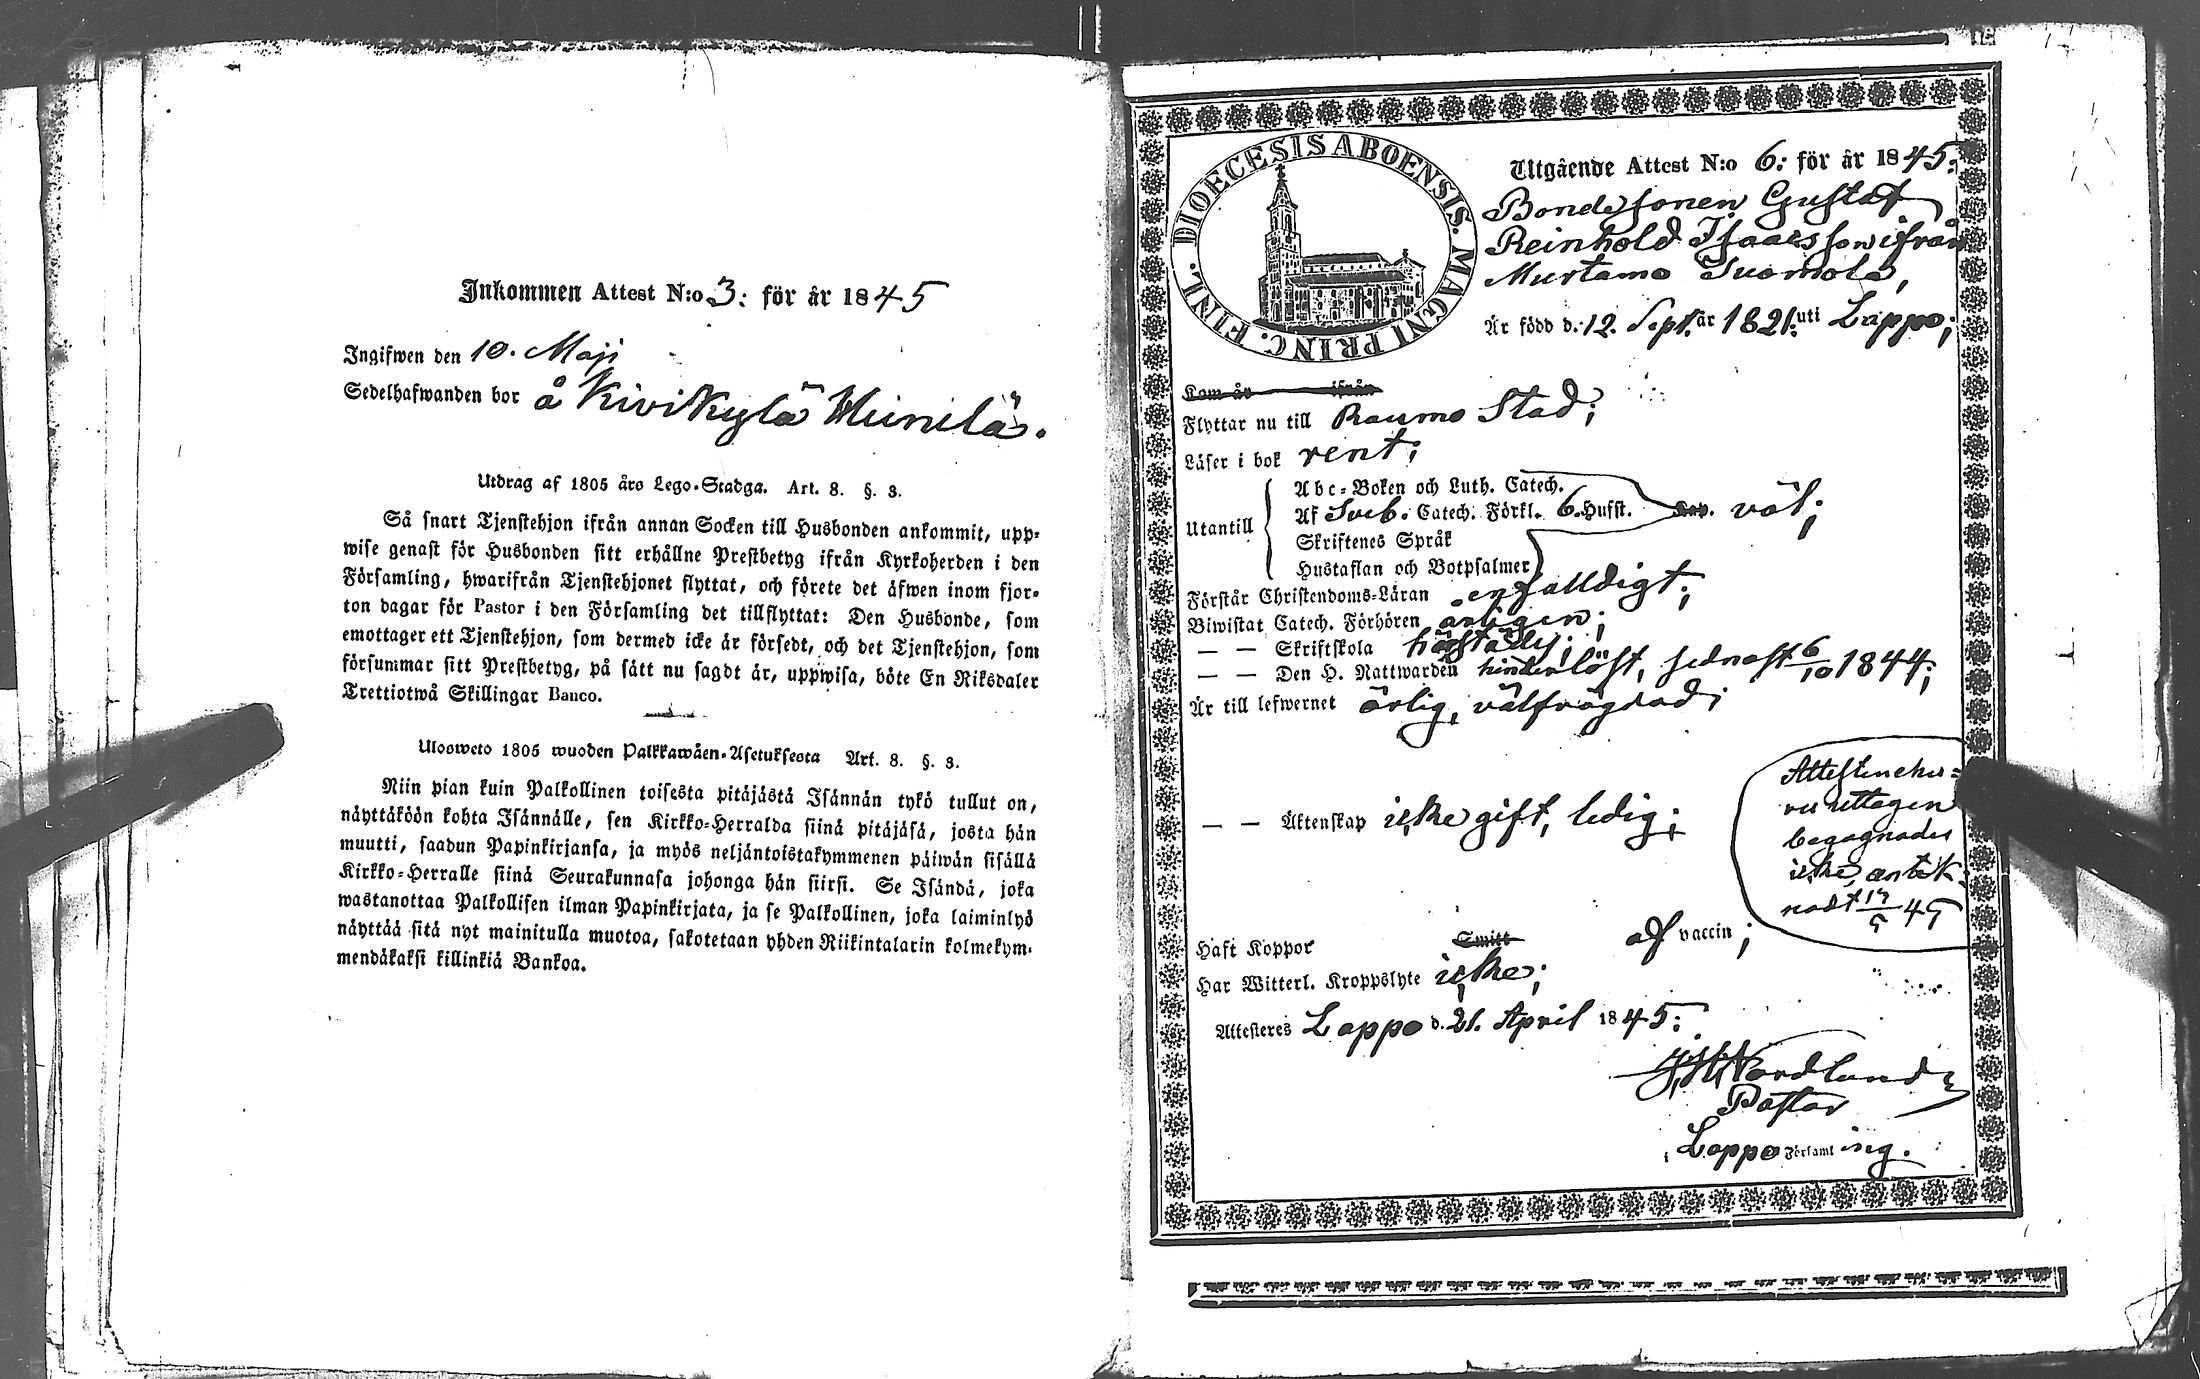 Inkommen Attest N:o 3: för år 1845
Ingifwen den 10. Maji
Sedelhafwanden bor å Kivikylä Heinilä.
Utdrag af 1805 års Lego-Stadga. Art. 8. §. 3.
Så snart Tjenstehjon ifrån annan Socken till Husbonden ankommit, upp-
wise genast för Husbonden sitt erhållne Prestbetyg ifrån Kyrkoherden i den
Församling, hwarifrån Tjenstehjonet flyttat, och förete det äfwen inom fjor-
ton dagar för Pastor i den Församling det tillflyttat: Den Husbonde, som
emottager ett Tjenstehjon, som dermed icke är försedt, och det Tjenstehjon, som
försummar sitt Prestbetyg, på sätt nu sagdt är, uppwisa, böte En Riksdaler
Trettiotwå Skillingar Banco.
Ulosweto 1805 wuoden Palkkawäen-Asetuksesta Art. 8. §. 3.
Niin pian kuin Palkollinen toisesta pitäjästä Isännän tykö tullut on,
näyttäköön kohta Isännälle, sen Kirkko-Herralda siinä pitäjäsä, josta hän
muutti, saadun Papinkirjansa, ja myös neljäntoistakymmenen päiwän sisällä
Kirkko-Herralle siinä Seurakunnasa johonga hän siirsi. Se Isändä, joka
wastanottaa Palkollisen ilman Papinkirjata, ja se Palkollinen, joka laiminlyö
näyttää sitä nyt mainitulla muotoa, sakotetaan yhden Riikintalarin kolmekym-
mendäkaksi killinkiä Bankoa.
DIOECESIS ABOENSIS. MAGNI PRINC. FINL.
Utgående Attest N:o 6: för år 1845:
Bondesonen Gustaf
Reinhold Isaacsson ifrån
Murtamo Suomola,
Är född d. 12. Sept. år 1821: uti Lappo;
Kom år ifrån
Flyttar nu till Raumo Stad;
Läser i bok rent;
Utantill
Abc-Boken och Luth. Catech.
Af Sveb. Catech. Förkl. 6. Hufst. Kap. väl;
Skriftenes Språk
Hustaflan och Botpsalmer
Förstår Christendoms-Läran enfalldigt;
Biwistat Catech. Förhören årligen;
— — Skriftskola härstädes;
— — Den H. Nattwarden hinderlöst, sednast 6/10 1844;
Är till lefwernet ärlig, välfrägdad;
— — Äktenskap icke gift, ledig;
Attesten ehu-
ru uttagen
begagnades
icke, anteck-
nadt 17/5 45
Haft Koppor Smitt af vaccin;
Har Witterl. Kroppslyte icke;
Attesteres Lappo d. 21. April 1845:
Nordlund
Pastor
i Lappo Församling.